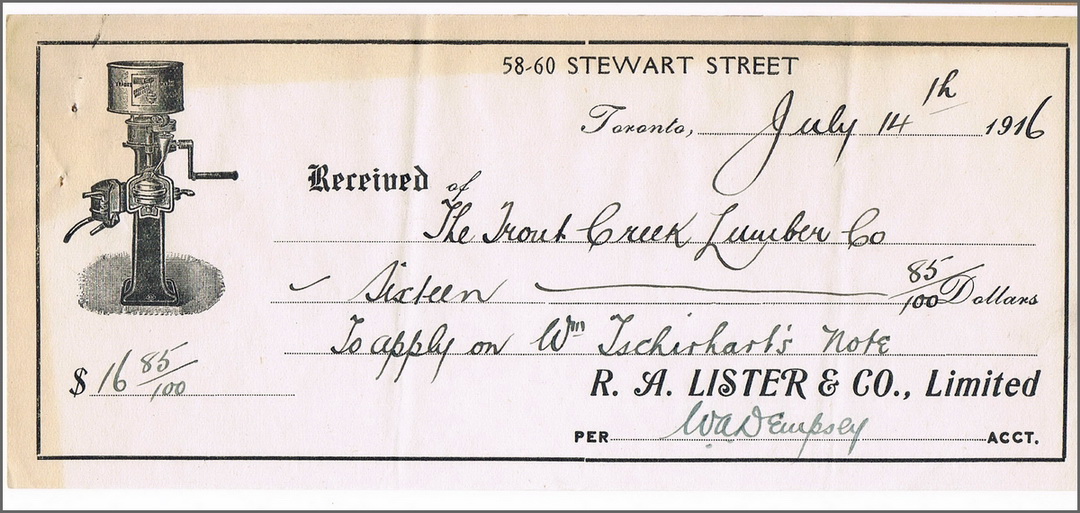 58-60 STEWART STREET
Toronto, July 14th 1916
Received of
The Trout Creek Lumber Co
Sixteen 85/100 Dollars
To apply on Wm Tschirhart's Note
$ 16 85/100
R. A. LISTER & CO., Limited
PER W.A. Dempsey ACCT.